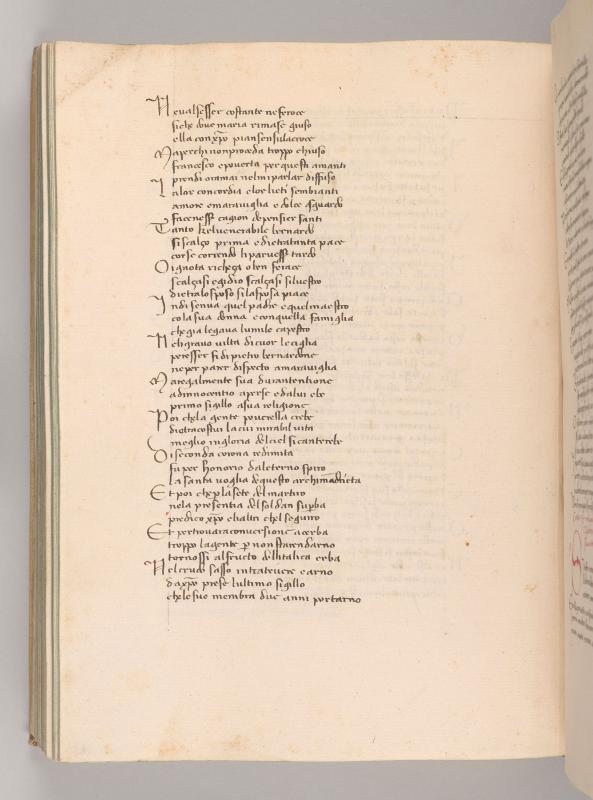 Ne valse esser costante ne feroce
siche dove maria rimase giuso
ella con xpo pianse in sulacroce
Ma perchi non proceda troppo chiuso
francesco e poverta per questi amanti
prendi oramai nel mi parlar diffuso
La lor concordia e lor lieti sembianti
amore e maraviglia e dolce sguardo
faceness cagion de pensier santi
Tanto kel venerabile bernardo
si scalço prima e dietratanta pace
corse correndo li parvess tardo
O ignota richeça o ben ferace
scalçasi egidio scalçasi silvestro
dietralo sposo si la sposa piace
Indi sen va quel padre e quel maestro
co la sua donna e con quella famiglia
che gia legava lumile capestro
Ne li gravo vilta di cuor le ciglia
peresser fi di pietro bernardone
ne per parer dispecto a maraviglia
Ma regalmente sua dura ntentione
ad innocentio aperse e da lui ebe
primo sigillo a sua religione
Poi che la gente poverella crebe
dietra costui la cui mirabil vita
meglio in gloria del ciel si canterebe
Di seconda corona redimita
fu per Honorio da leterno spiro
La santa voglia de questo archimandrita
Et poi che p la sete del martiro
ne la presentia del soldan supba
predico xpo e li altri chel seguiro
Et per trovar a conversione acerba
troppo la gente p non star endarno
tornossi al fructo dellitalica erba
Nel crudo sasso intra tevere e arno
da xpo prese lultimo sigillo
che le sue membra due anni portarno